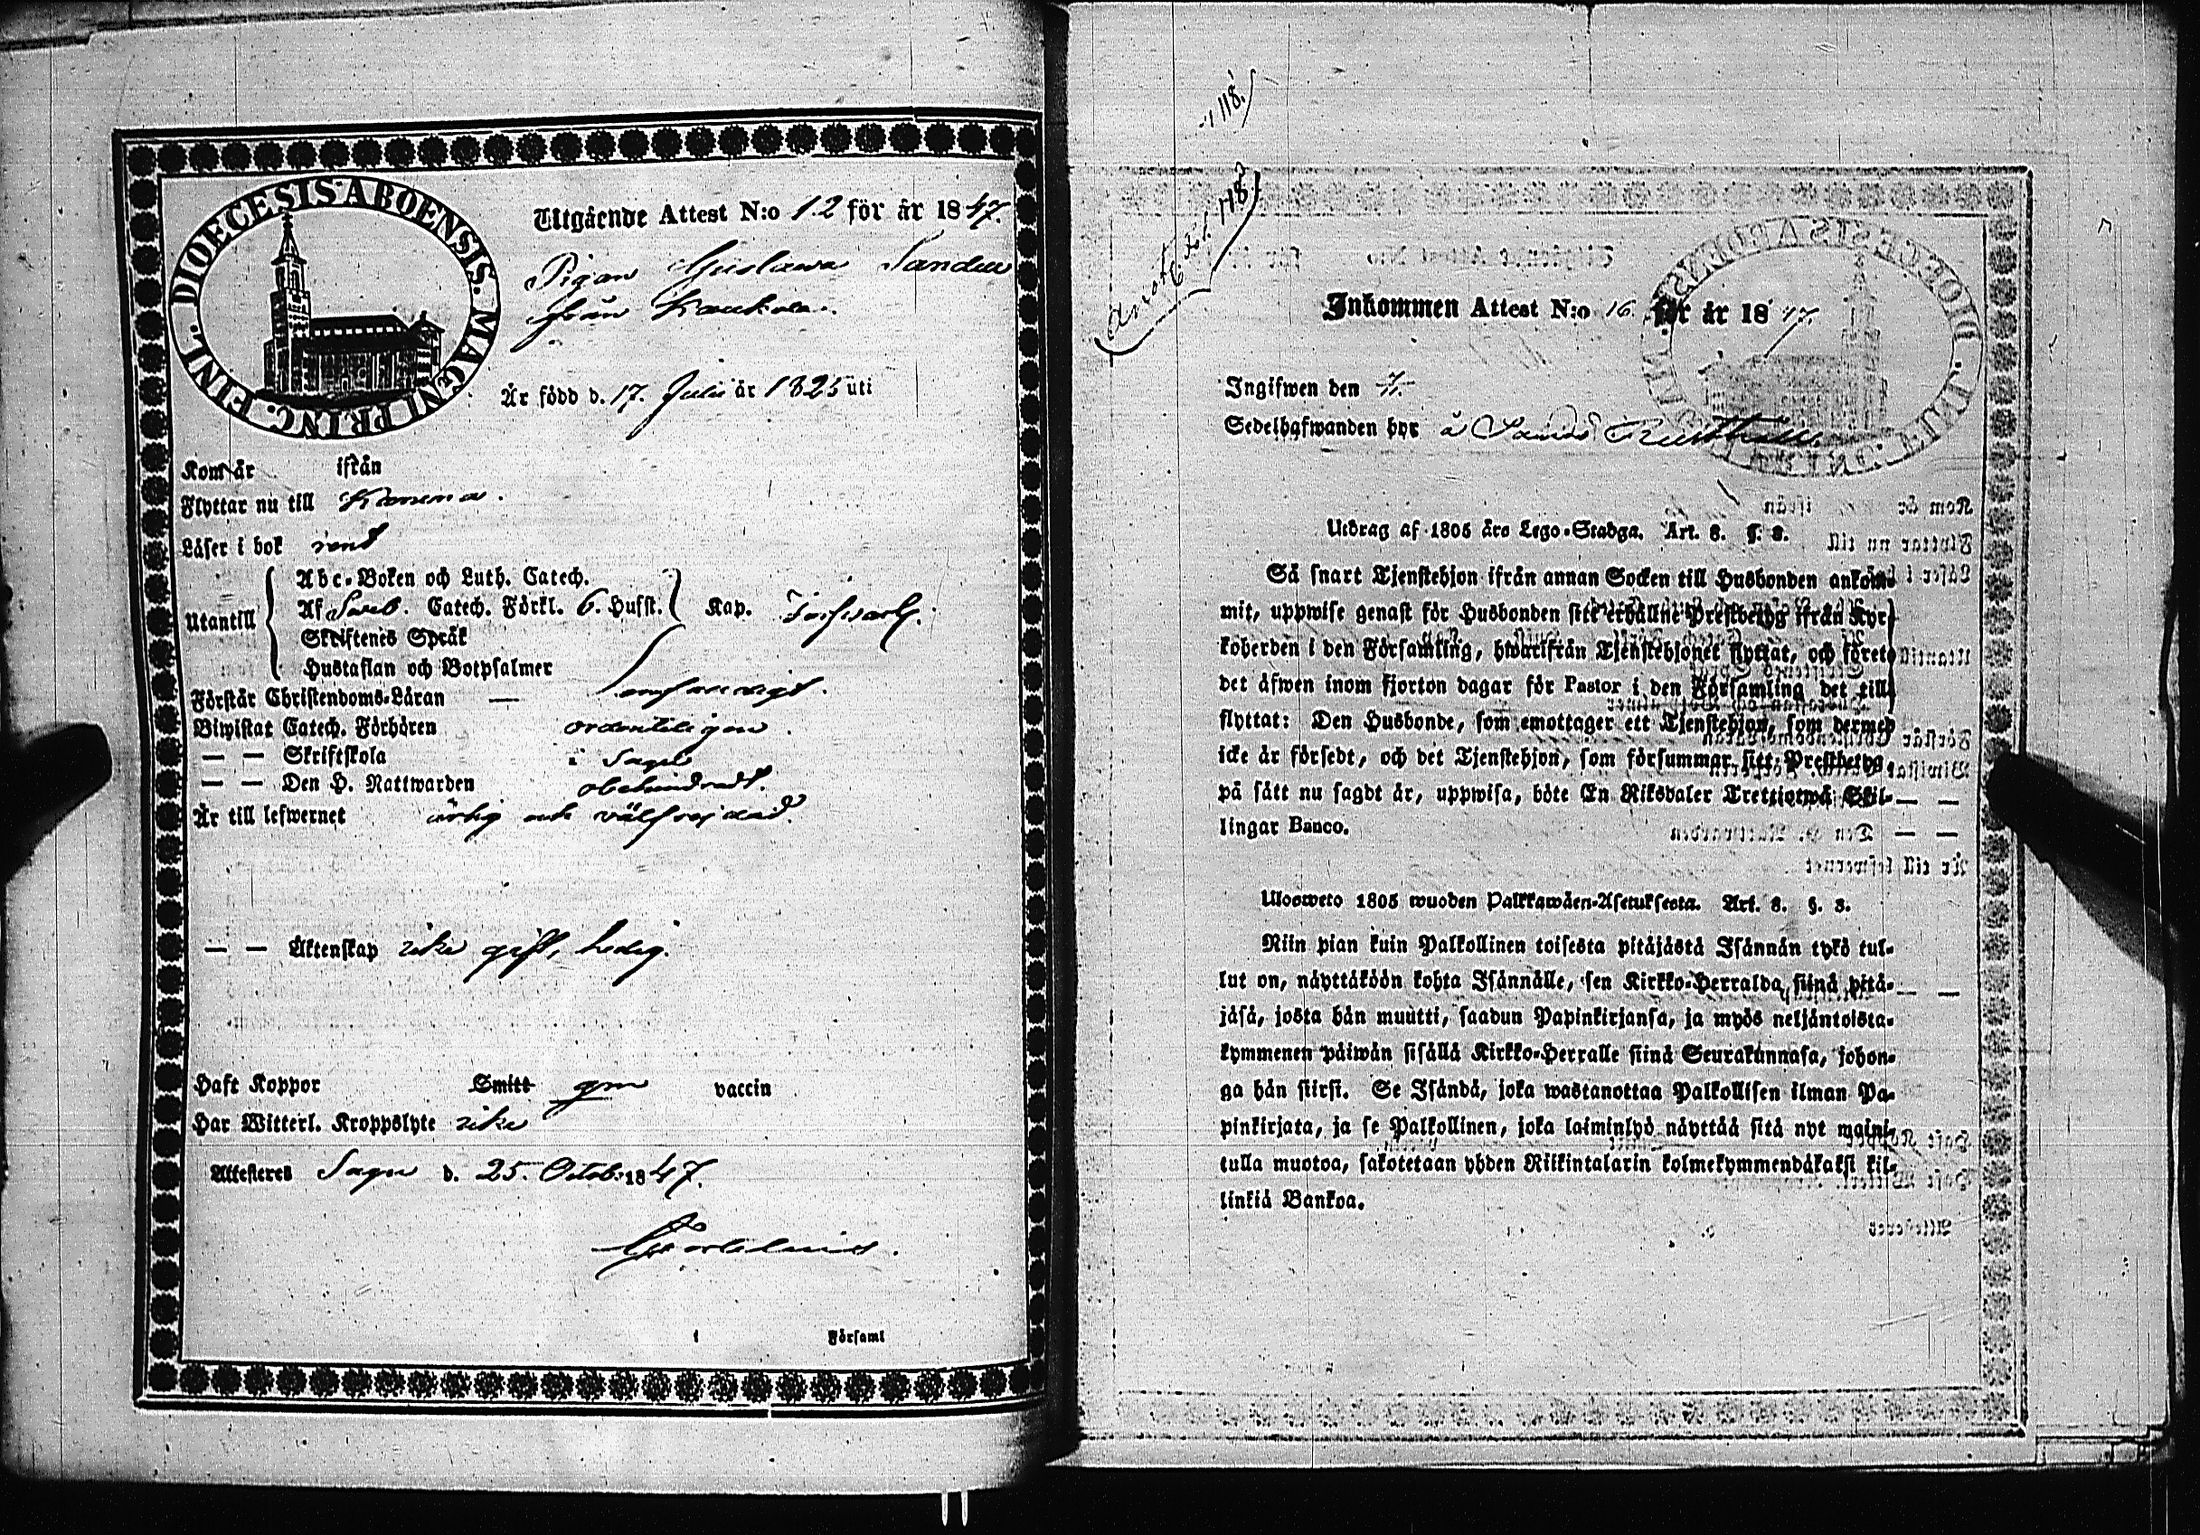 DIOECESIS ABOENSIS. MAGNI PRINC. FINL.
Utgående Attest N:o 12 för år 1847.
Pigan Gustawa Sander
från Kaukola.
Är född d. 17. Julii år 1825 uti
Kom år ifrån
Flyttar nu till
Läser i bok rent
Utantill
Abc-Boken och Luth. Catech.
Af Sveb. Catech. Förkl. 6. Hufst.
Skriftenes Språk
Hustaflan och Botpsalmer
Kap. Försvarl.
Förstår Christendoms-Läran —
Biwistat Catech. Förhören ordenteligen.
— — Skriftskola i Sagu
— — Den H. Nattwarden obehindradt.
Är till lefwernet ärlig och välfrejdad.
— — Äktenskap icke gift, ledig.
Haft Koppor Smitt gm vaccin
Har Witterl. Kroppslyte icke
Attesteras Sagu d. 25 Octob. 1847.
i Församl
118.
118
Inkommen Attest N:o 16. för år 1847.
Ingifwen den
Sedelhafwanden hyr å
Utdrag af 1805 års Lego-Stadga. Art. 8. §. 3.
Så snart Tjenstehjon ifrån annan Socken till Husbonden ankom-
mit, uppwise genast för Husbonden sitt erhållne Prestbetyg ifrån Kyr-
koherden i den Församling, hwarifrån Tjenstehjonet flyttat, och förete
det äfwen inom fjorton dagar för Pastor i den Församling det till
flyttat: Den Husbonde, som emottager ett Tjenstehjon, som dermed
icke är försedt, och det Tjenstehjon, som försummar sitt Prestbetyg,
på sätt nu sagdt är, uppwisa, böte En Riksdaler Trettiotwå Skil-
lingar Banco.
Ulosweto 1805 wuoden Palkkawäen-Asetuksesta. Art. 8. §. 3.
Niin pian kuin Palkollinen toisesta pitäjästä Isännän tykö tul-
lut on, näyttäköön kohta Isännälle, sen Kirkko-Herralda siinä pitä-
jäsä, josta hän muutti, saadun Papinkirjansa, ja myös neljäntoista-
kymmenen päiwän sisällä Kirkko-Herralle siinä Seurakunnasa, johon-
ga hän siirsi. Se Isändä, joka wastanottaa Palkollisen ilman Pa-
pinkirjata, ja se Palkollinen, joka laiminlyö näyttää sitä nyt maini-
tulla muotoa, sakotetaan yhden Riikintalarin kolmekymmendäkaksi kil-
linkiä Bankoa.